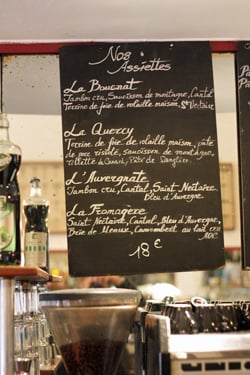 Nos
Assiettes
La Bougnat
Jambon cru, Saucisson de montagne, Cantal
Terrine de foie de volaille maison, St Nectaire
La Quercy
Terrine de foie de volaille maison, pâté
de porc rissolé, saucisson de montagne,
Rillette de Canard, Pâté de Sanglier
L'Auvergnate
Jambon cru, Cantal, Saint-Nectaire
Bleu d'Auvergne
La Fromagère
Saint-Nectaire, Cantal, Bleu d'Auvergne,
Brie de Meaux, Camembert au lait cru
AOC
18€